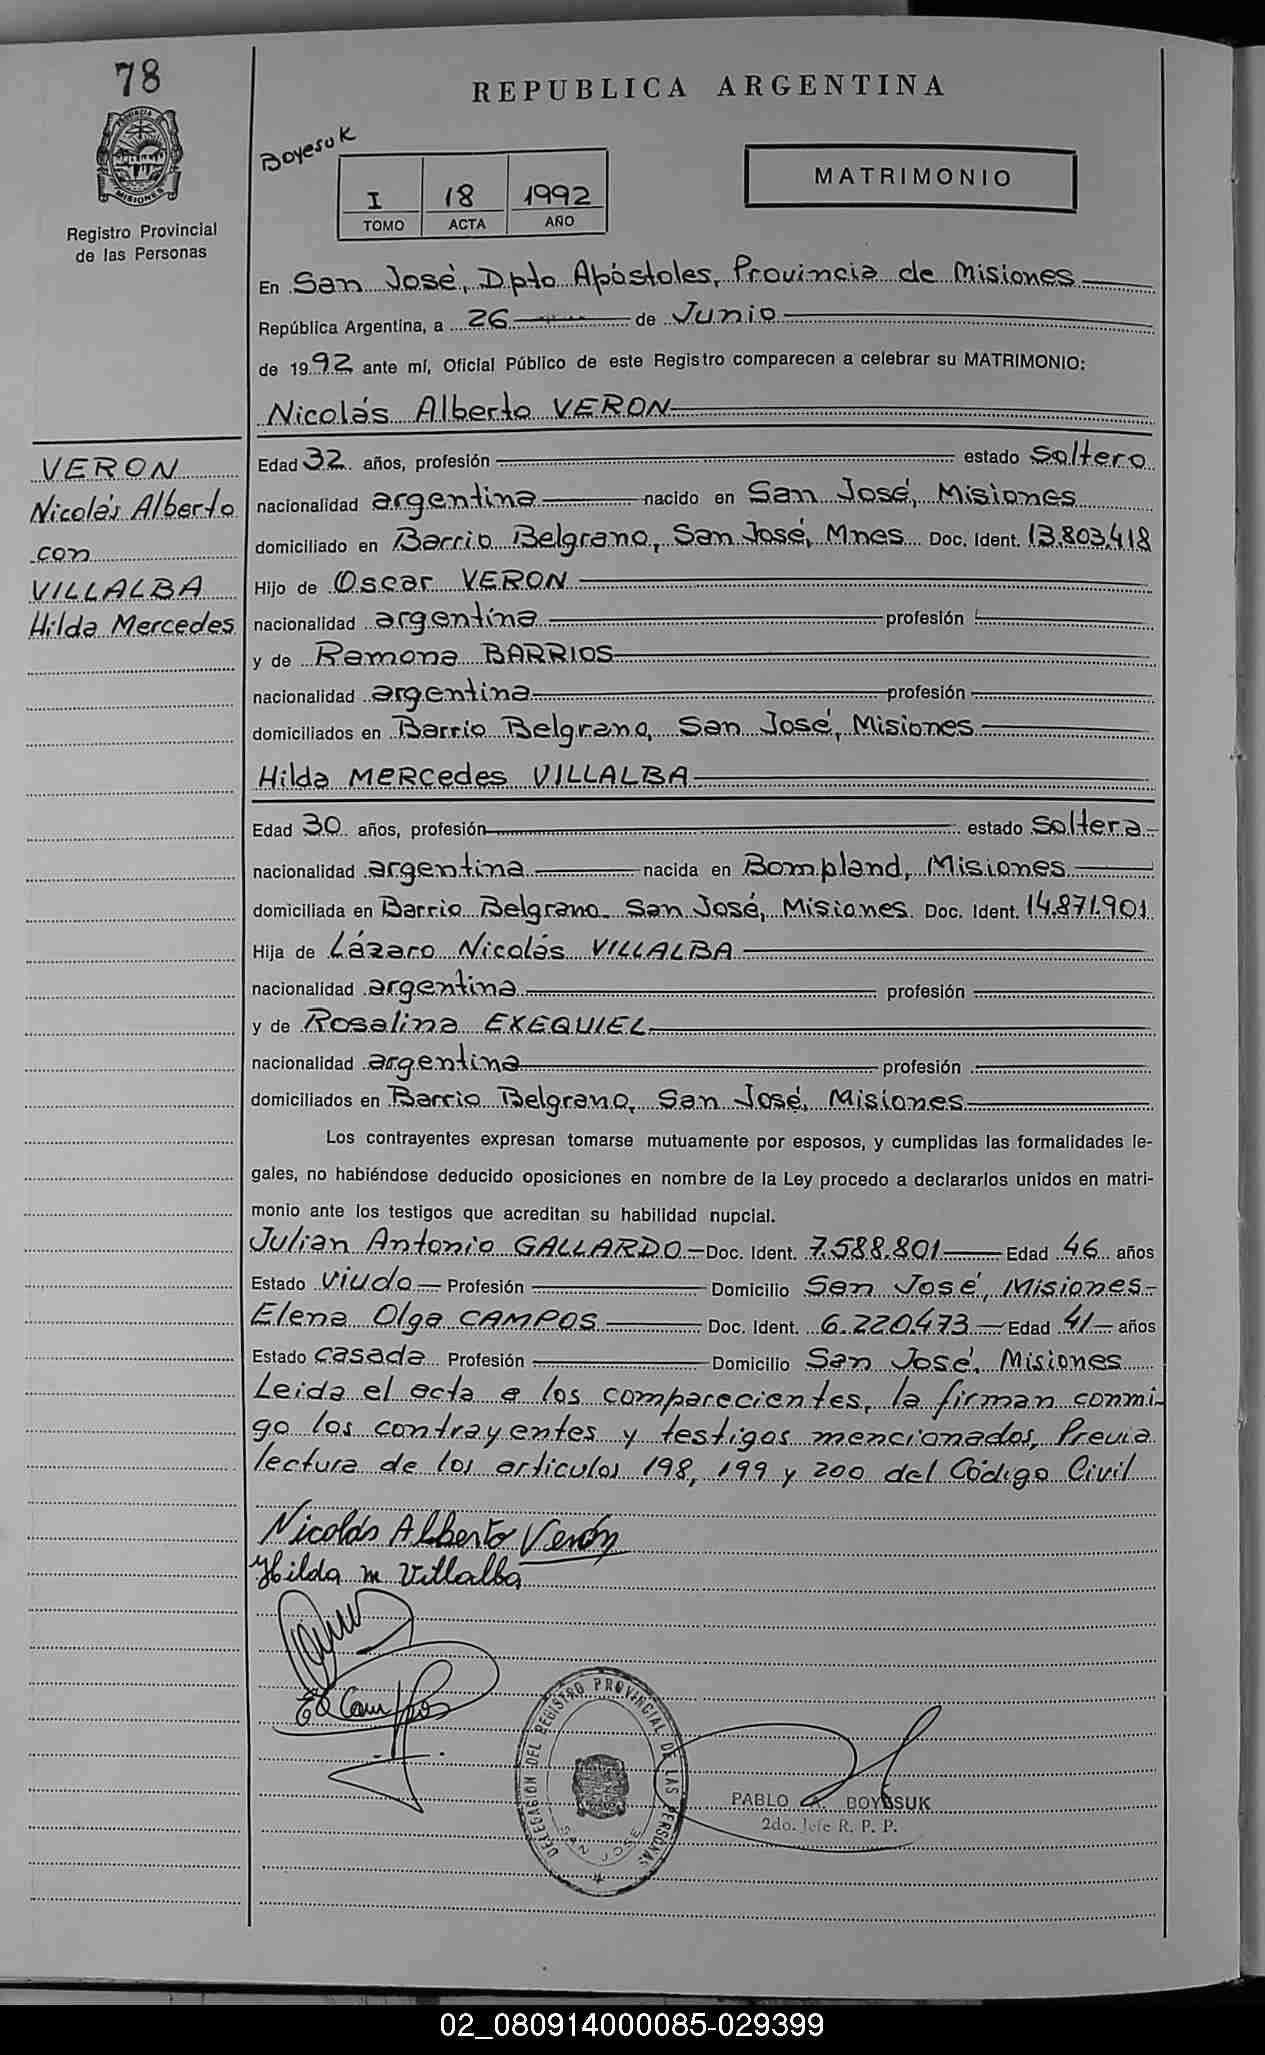 78
REPUBLICA ARGENTINA
PROVINCIA DE MISIONES
Registro Provincial
de las Personas
Boyesuk
I 18 1992
TOMO ACTA AÑO
MATRIMONIO
En San José, Dpto Apóstoles, Provincia de Misiones
República Argentina, a 26 de Junio
de 1992 ante mí, Oficial Público de este Registro comparecen a celebrar su MATRIMONIO:
Nicolás Alberto VERON
VERON
Nicolás Alberto
con
VILLALBA
Hilda Mercedes
Edad 32 años, profesión estado Soltero
nacionalidad argentina nacido en San José, Misiones
domiciliado en Barrio Belgrano, San José, Mnes Doc. Ident. 13.803.418
Hijo de Oscar VERON
nacionalidad argentina profesión
y de Ramona BARRIOS
nacionalidad argentina profesión
domiciliados en Barrio Belgrano, San José, Misiones
Hilda MERcedes VILLALBA
Edad 30 años, profesión estado Soltera
nacionalidad argentina nacida en Bompland, Misiones
domiciliada en Barrio Belgrano San José, Misiones Doc. Ident. 14.871.901
Hija de Lázaro Nicolás VILLALBA
nacionalidad argentina profesión
y de Rosalina EXEQUIEL
nacionalidad argentina profesión
domiciliados en Barrio Belgrano, San José, Misiones
Los contrayentes expresan tomarse mutuamente por esposos, y cumplidas las formalidades le-
gales, no habiéndose deducido oposiciones en nombre de la Ley procedo a declararlos unidos en matri-
monio ante los testigos que acreditan su habilidad nupcial.
Julian Antonio GALLARDO Doc. Ident. 7.588.801 Edad 46 años
Estado viudo Profesión Domicilio San José, Misiones
Elena Olga CAMPOS Doc. Ident. 6.220.473 Edad 41 años
Estado casada Profesión Domicilio San José, Misiones
Leida el acta a los comparecientes, la firman conmi-
go los contrayentes y testigos mencionados, Previa
lectura de los articulos 198, 199 y 200 del Código Civil
Nicolás Alberto Verón
Hilda M Villalba
E O Campos
DELEGACIÓN DEL REGISTRO PROVINCIAL DE LAS PERSONAS
SAN JOSE
PABLO A. BOYESUK
2do. Jefe R. P. P.
02_080914000085-029399